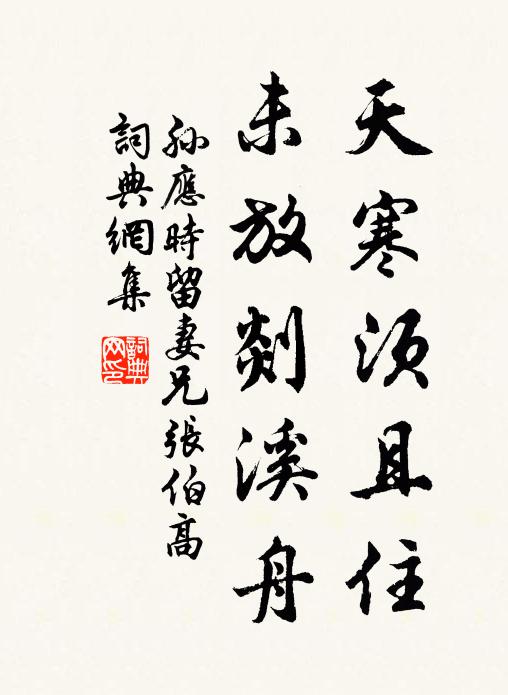 天寒須且住
未放剡溪舟
孫應時留妻兄張伯高
詞典網集
詞典網印